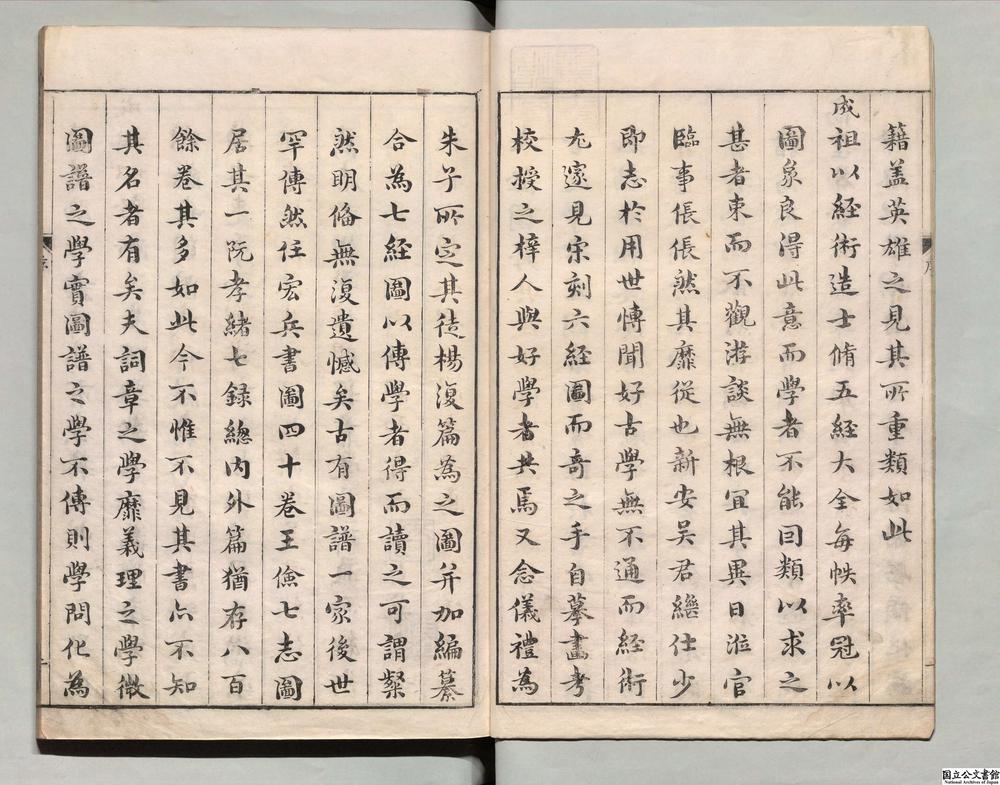 籍盖英雄之見其所重類如此
成祖以經術造士脩五經大全每帙率冠以
圖象良得此意而學者不能囙類以求之
甚者束而不觀游談無根宜其異日涖官
臨事倀倀然其靡從也新安吴君繼仕少
即志於用世慱聞好古學無不通而經術
尤邃見宋刻六經圖而奇之手自摹畫考
校授之梓人與好學者共焉又念儀禮為
朱子所定其徒楊復篇為之圖并加編纂
合為七經圖以傳學者得而讀之可謂粲
然明備無復遺憾矣古有圖譜一家後世
罕傳然任宏兵書圖四十卷王儉七志圖
居其一阮孝緒七録緫内外篇猶存八百
餘卷其多如此今不惟不見其書亦不知
其名者有矣夫詞章之學靡義理之學微
圖譜之學實圖譜之學不傳則學問化為
序
国立公文書館
National Archives of Japan